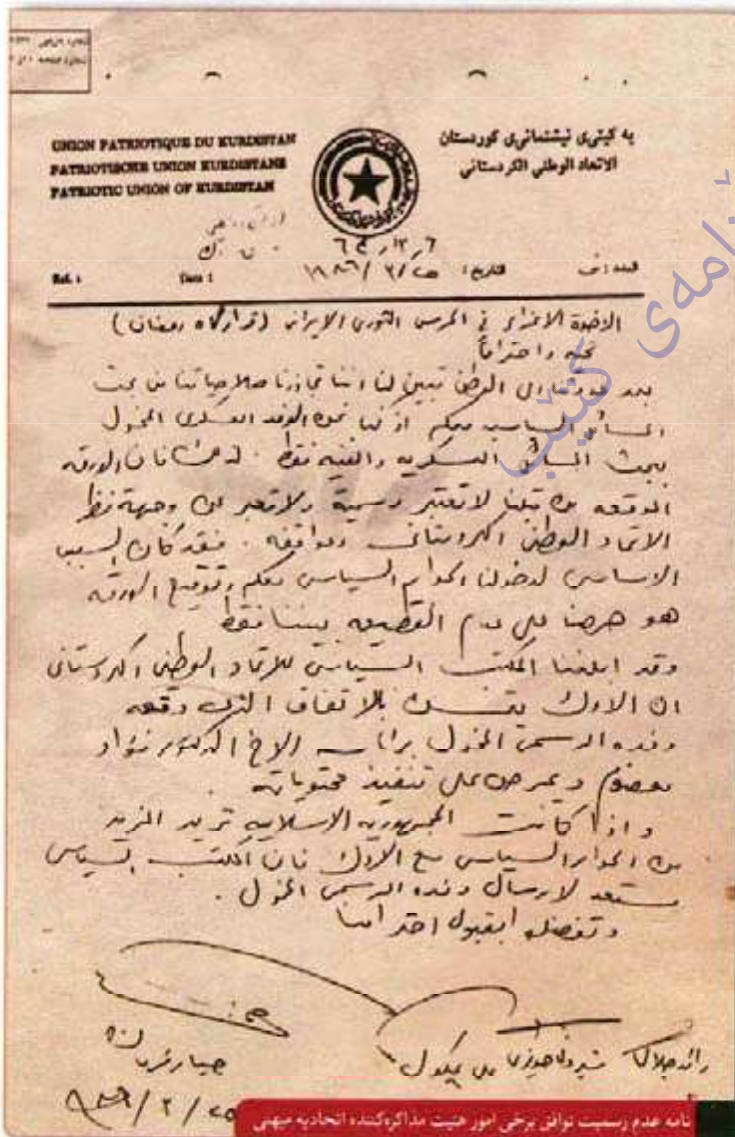 UNION PATRIOTIQUE DU KURDISTAN
PATRIOTISCHE UNION KURDISTANS
PATRIOTIC UNION OF KURDISTAN
یه کیتی نیشتمانی کوردستان
الاتحاد الوطني الكردستاني
العدد:
التاريخ: ١٩٨٦/٣/٢٥
Date :
Ref. :
الاخوة الاعزاء في الحرس الثوري الايراني (قرارگاه رمضان)
تحية واحتراماً
بعد عودتنا الى الوطن تبين لنا اننا تجاوزنا صلاحياتنا من بحث
المسائل السياسية معكم اذ نحن الوفد العسكري المخول
ببحث المسائل العسكرية والفنية فقط . لذا فان الورقة
الموقعة من قبلنا لا تعتبر رسمية ولا تعبر عن وجهة نظر
الاتحاد الوطني الكردستاني ومواقفه . فقد كان السبب
الاساسي لدخولنا الحوار السياسي معكم وتوقيع الورقة
هو حرصنا على عدم القطيعة بيننا فقط
وقد ابلغنا المكتب السياسي للاتحاد الوطني الكردستاني
ان الاوك بالاتفاق الذي وقعه
وفده الرسمي المخول برئاسة الاخ الدكتور فؤاد
معصوم ويحرص على تنفيذ محتوياته .
واذا كانت الجمهورية الاسلامية تريد المزيد
من الحوار السياسي مع الاوك فان المكتب السياسي
مستعد لارسال وفده الرسمي المخول .
وتفضلوا بقبول احترامنا
نامه عدم رسمیت توافق برخی امور هیئت مذاکره‌کننده اتحادیه میهنی